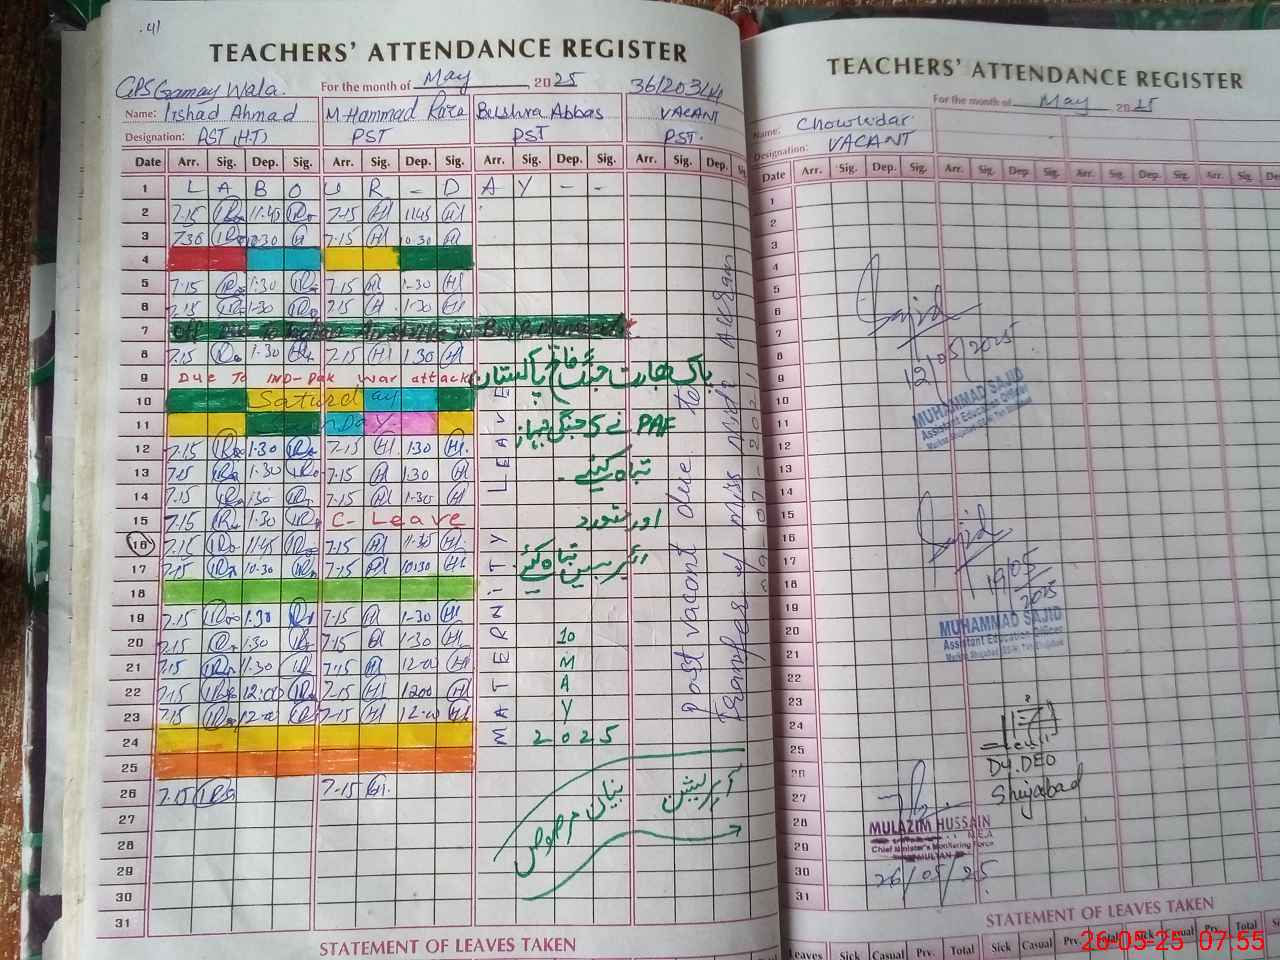 41
TEACHERS' ATTENDANCE REGISTER
GPS Gamay Wala. For the month of May 2025 36120344
Name: Irshad Ahmad M Hammad Raza Bushra Abbas VACANT
Designation: PST (H.T) PST PST PST.
Date Arr. Sig. Dep. Sig. Arr. Sig. Dep. Sig. Arr. Sig. Dep. Sig. Arr. Sig. Dep. Sig.
1 L A B O U R - D A Y - -
2 7.15 11:45 7-15 1145
3 7.30 10.30 7.15 10.30
4
5 7.15 1.30 7.15 1-30
6 7.15 1.30 7.15 1.30
7 Off Due to Indian
8 7.15 1.30 7.15 1.30
9 Due To IND-Pak war attack پاک بھارت جنگ فاتح پاکستان
10 Saturday
11 Sunday PAF نے 5 جنگی جہاز
12 7.15 1.30 7.15 1.30
13 7.15 1.30 7.15 1.30 تباہ کیئے
14 7.15 1.30 7.15 1.30
15 7.15 1.30 C- Leave اور متعدد
16 7.15 11.45 7.15 11.45
17 7.15 10.30 7.15 10:30 ائیر بیس تباہ کیئے
18
19 7.15 1.30 7.15 1-30
20 7.15 1.30 7.15 1-30 10
21 7.15 11.30 7.15 12-00 M
22 7.15 12:00 7.15 1200 A
23 7.15 12-00 7-15 12-00 Y
24 2025
25
26 7.15 7-15
27 آپریشن
28 بنیان مرصوص
29
30
31
MATERNITY LEAVE
Post vacant due to
Transfer of Miss Mid
STATEMENT OF LEAVES TAKEN
TEACHERS' ATTENDANCE REGISTER
For the month of May 2025
Name: Chowkidar
Designation: VACANT
Date Arr. Sig. Dep. Sig. Arr. Sig. Dep. Sig. Arr. Sig. De
1
2
3
4
5
6 Sajid
7
8 12/05/2025
9
10 MUHAMMAD SAJID
11 Assistant Education Officer
12
13
14
15
16 Sajid
17
18 19/05
19 2025
20 MUHAMMAD SAJID
21 Assistant Education Officer
22
23
24
25
26 Dy. DEO
27 Shujabad
28 MULAZIM HUSSAIN
M.E.A
29 Chief Minister's Monitoring Force
MULTAN
30 26/05/25
31
STATEMENT OF LEAVES TAKEN
Leaves Sick Casual Prv. Total Sick Casual Prv. Total Sick Casual Prv. Total
26-05-25 07:55